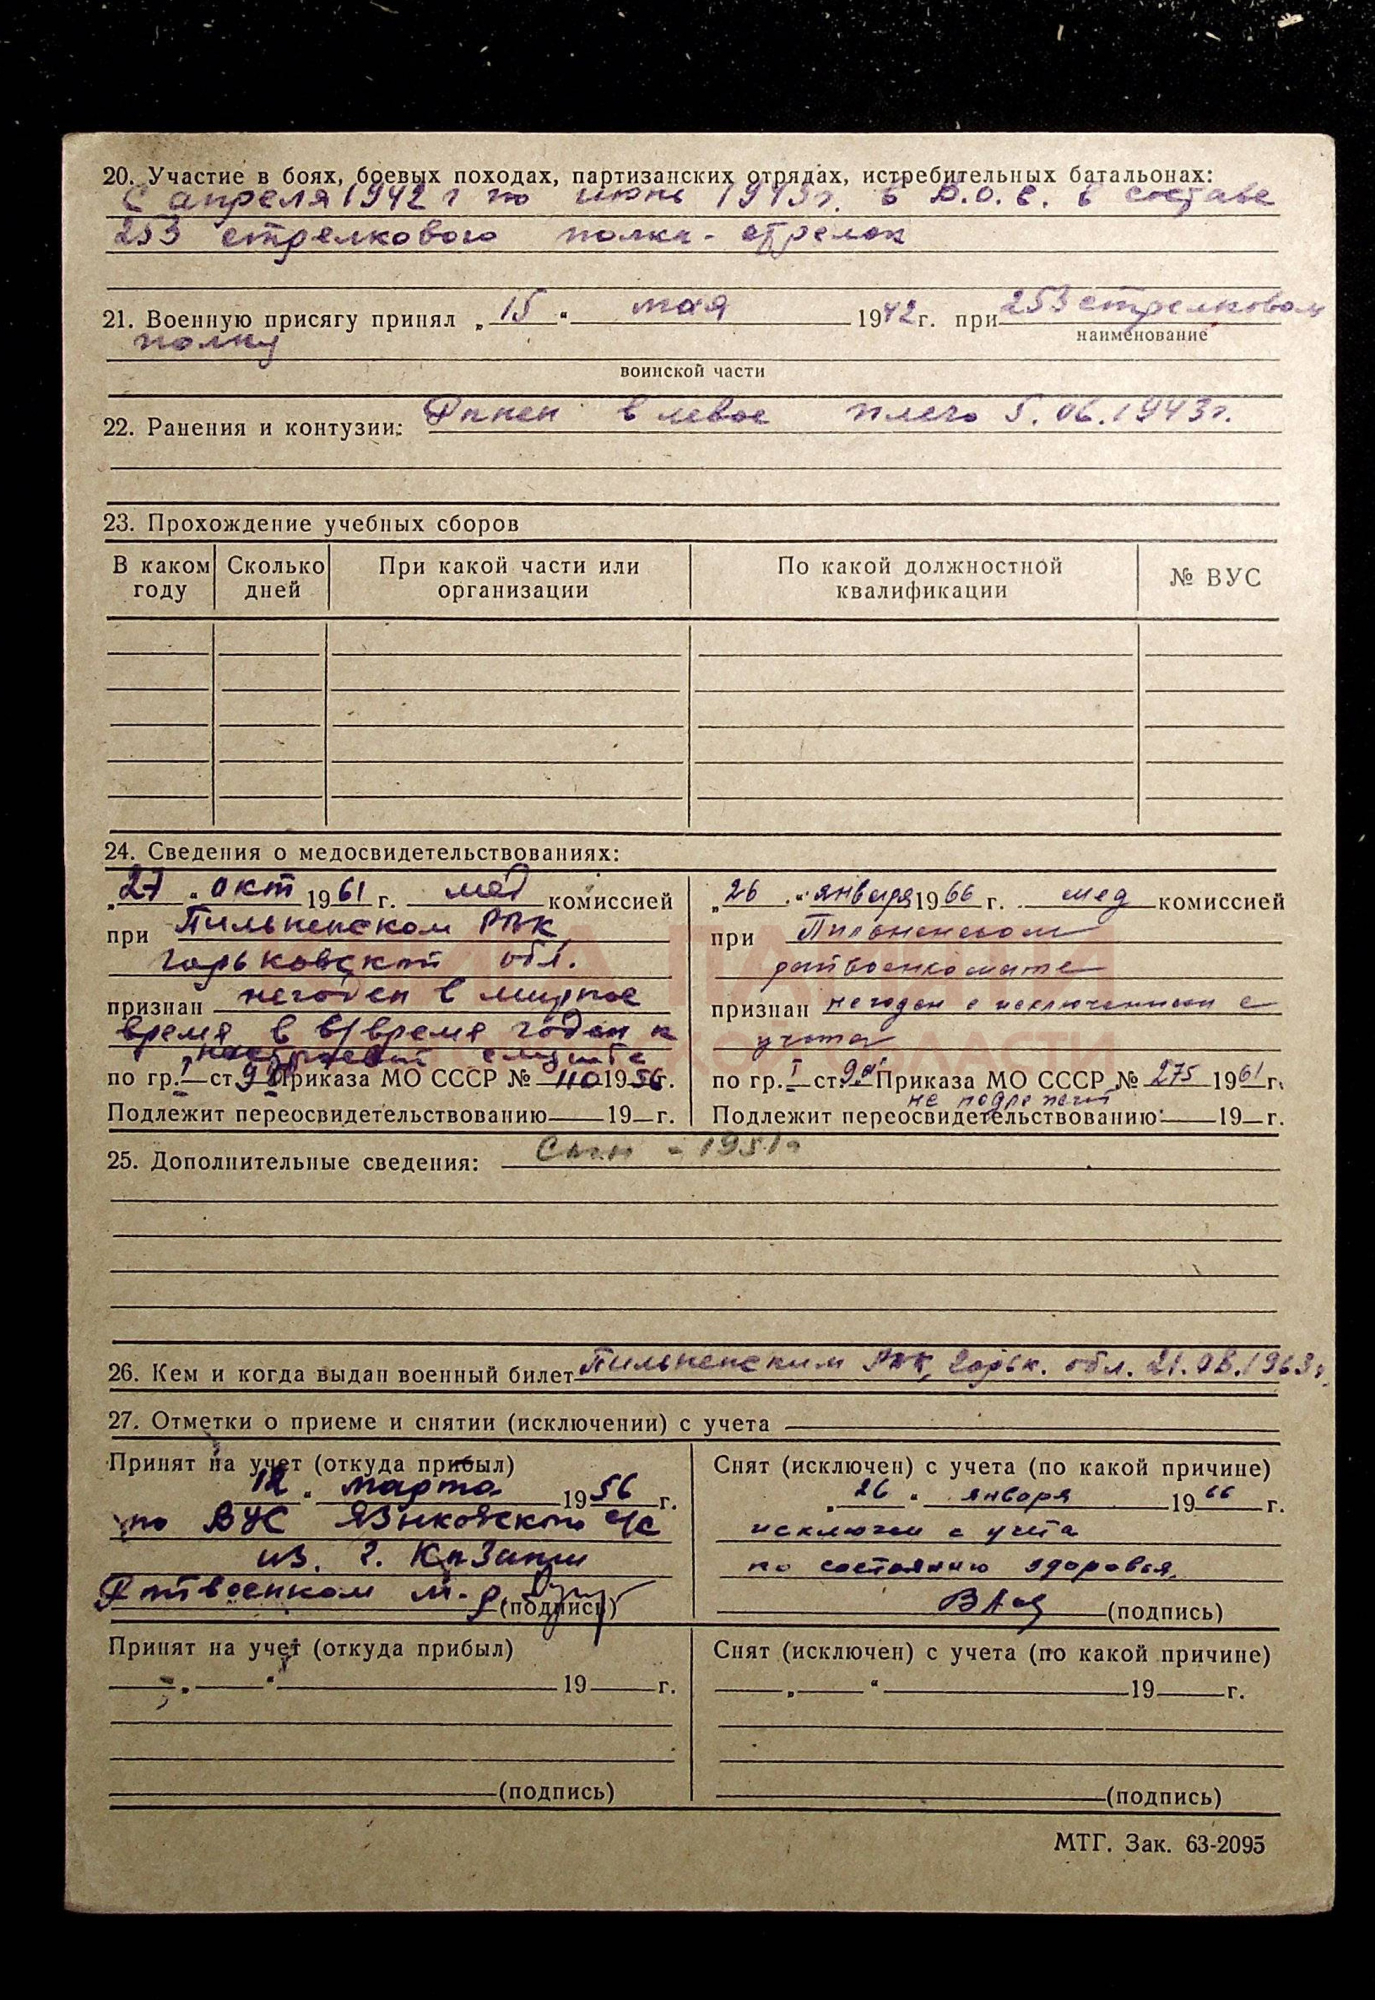 20. Участие в боях, боевых походах, партизанских отрядах, истребительных батальонах:
С апреля 1942 г по июнь 1943г. в В.О.В. в составе
253 стрелкового полка - стрелок
21. Военную присягу принял „ 15 “ мая 1942 г. при 253 стрелковом
наименование
полку
воинской части
22. Ранения и контузии: Ранен в левое плечо 5.06.1943г.
23. Прохождение учебных сборов
В каком году Сколько дней При какой части или организации По какой должностной квалификации № ВУС
24. Сведения о медосвидетельствованиях:
„27“ окт 1961 г. мед комиссией
при Пильненском РВК
горьковской обл.
признан негоден в мирное
время в в/время годен к
нестроевой службе
по гр. I ст. 9 Приказа МО СССР № 110 1956г.
Подлежит переосвидетельствованию 19 г.
„26“ января 1966 г. мед комиссией
при Пильненском
райвоенкомате
признан негоден с исключением с
учета
по гр. I ст. 9а Приказа МО СССР № 275 1961г.
не подлежит
Подлежит переосвидетельствованию: 19 г.
25. Дополнительные сведения: Сын - 1951г
26. Кем и когда выдан военный билет Пильненским РВК, Горьк. обл. 21.08.1963г.
27. Отметки о приеме и снятии (исключении) с учета
Принят на учет (откуда прибыл)
12 „ марта 1956 г.
по ВУС Языковского с/с
из. г. Казани
Райвоенком м-р (подпись)
Снят (исключен) с учета (по какой причине)
„ 26 “ января 1966 г.
исключен с учета
по состоянию здоровья.
(подпись)
Принят на учет (откуда прибыл)
„ “ 19 г.
(подпись)
Снят (исключен) с учета (по какой причине)
„ “ 19 г.
(подпись)
МТГ. Зак. 63-2095